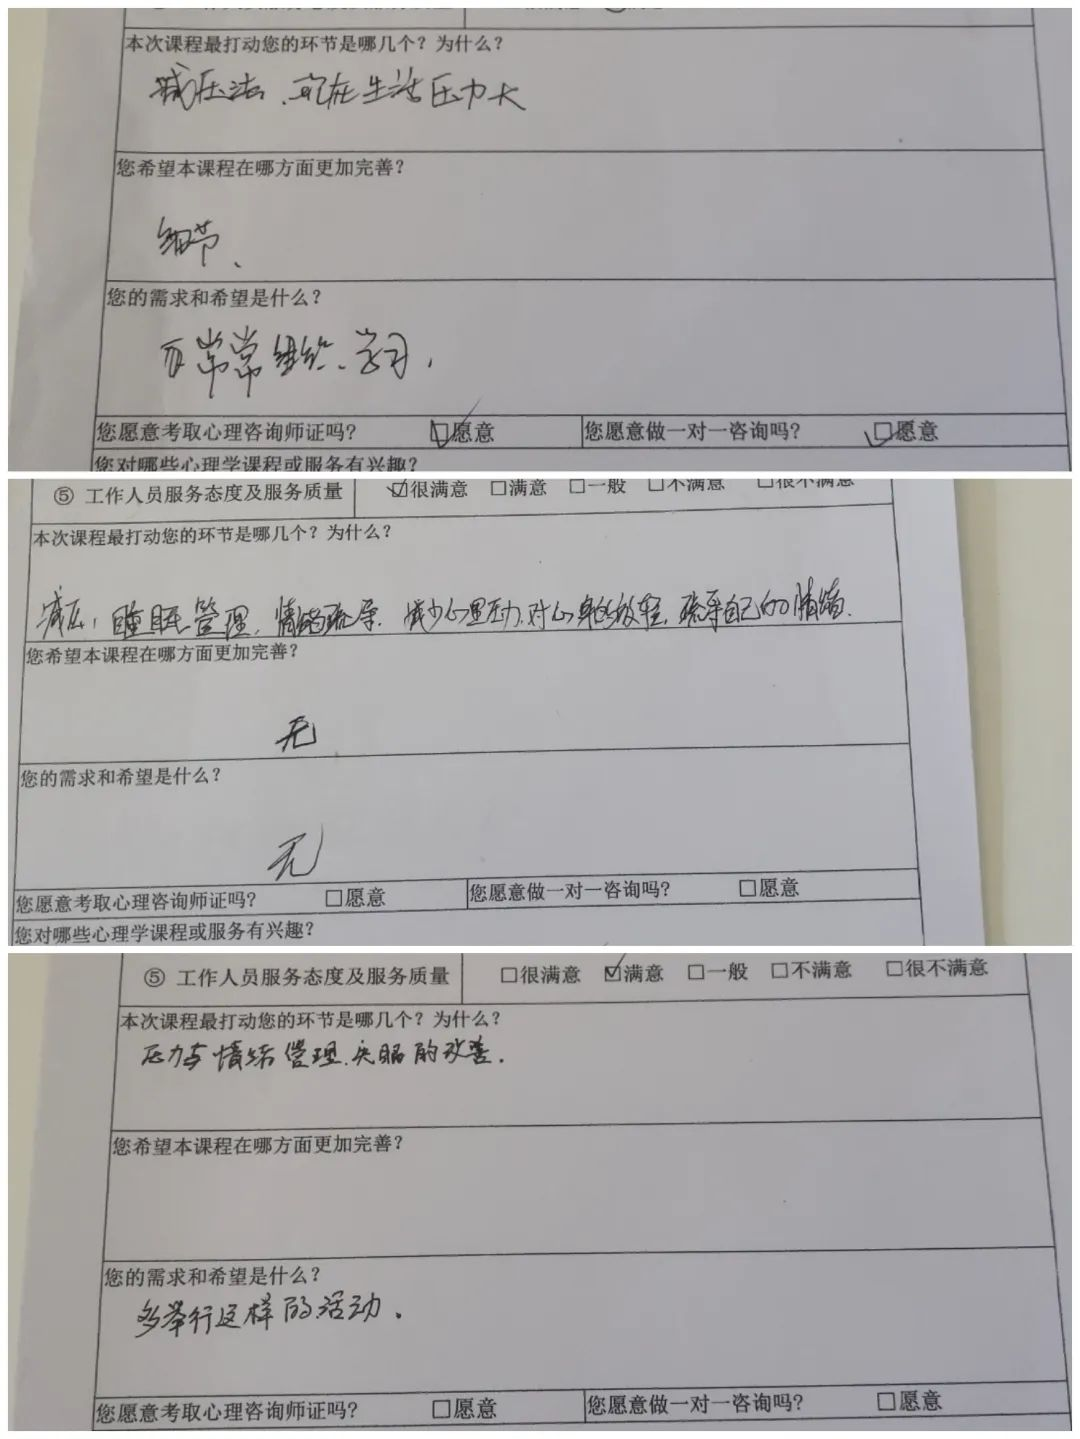 本次课程最打动您的环节是哪几个？为什么？
减压法、现在生活压力大
您希望本课程在哪方面更加完善？
细节、
您的需求和希望是什么？
常常组织、学习，
您愿意考取心理咨询师证吗？ ☑愿意 您愿意做一对一咨询吗？ ☑愿意
您对哪些心理学课程或服务有兴趣？
⑤ 工作人员服务态度及服务质量 ☑很满意 □满意 □一般 □不满意 □很不满意
本次课程最打动您的环节是哪几个？为什么？
减压，睡眠管理，情绪疏导，减少心理压力，对心身的放轻，疏导自己的情绪.
您希望本课程在哪方面更加完善？
无
您的需求和希望是什么？
无
您愿意考取心理咨询师证吗？ □愿意 您愿意做一对一咨询吗？ □愿意
您对哪些心理学课程或服务有兴趣？
⑤ 工作人员服务态度及服务质量 □很满意 ☑满意 □一般 □不满意 □很不满意
本次课程最打动您的环节是哪几个？为什么？
压力与情绪管理、失眠的改善.
您希望本课程在哪方面更加完善？
您的需求和希望是什么？
多举行这样的活动.
您愿意考取心理咨询师证吗？ □愿意 您愿意做一对一咨询吗？ □愿意